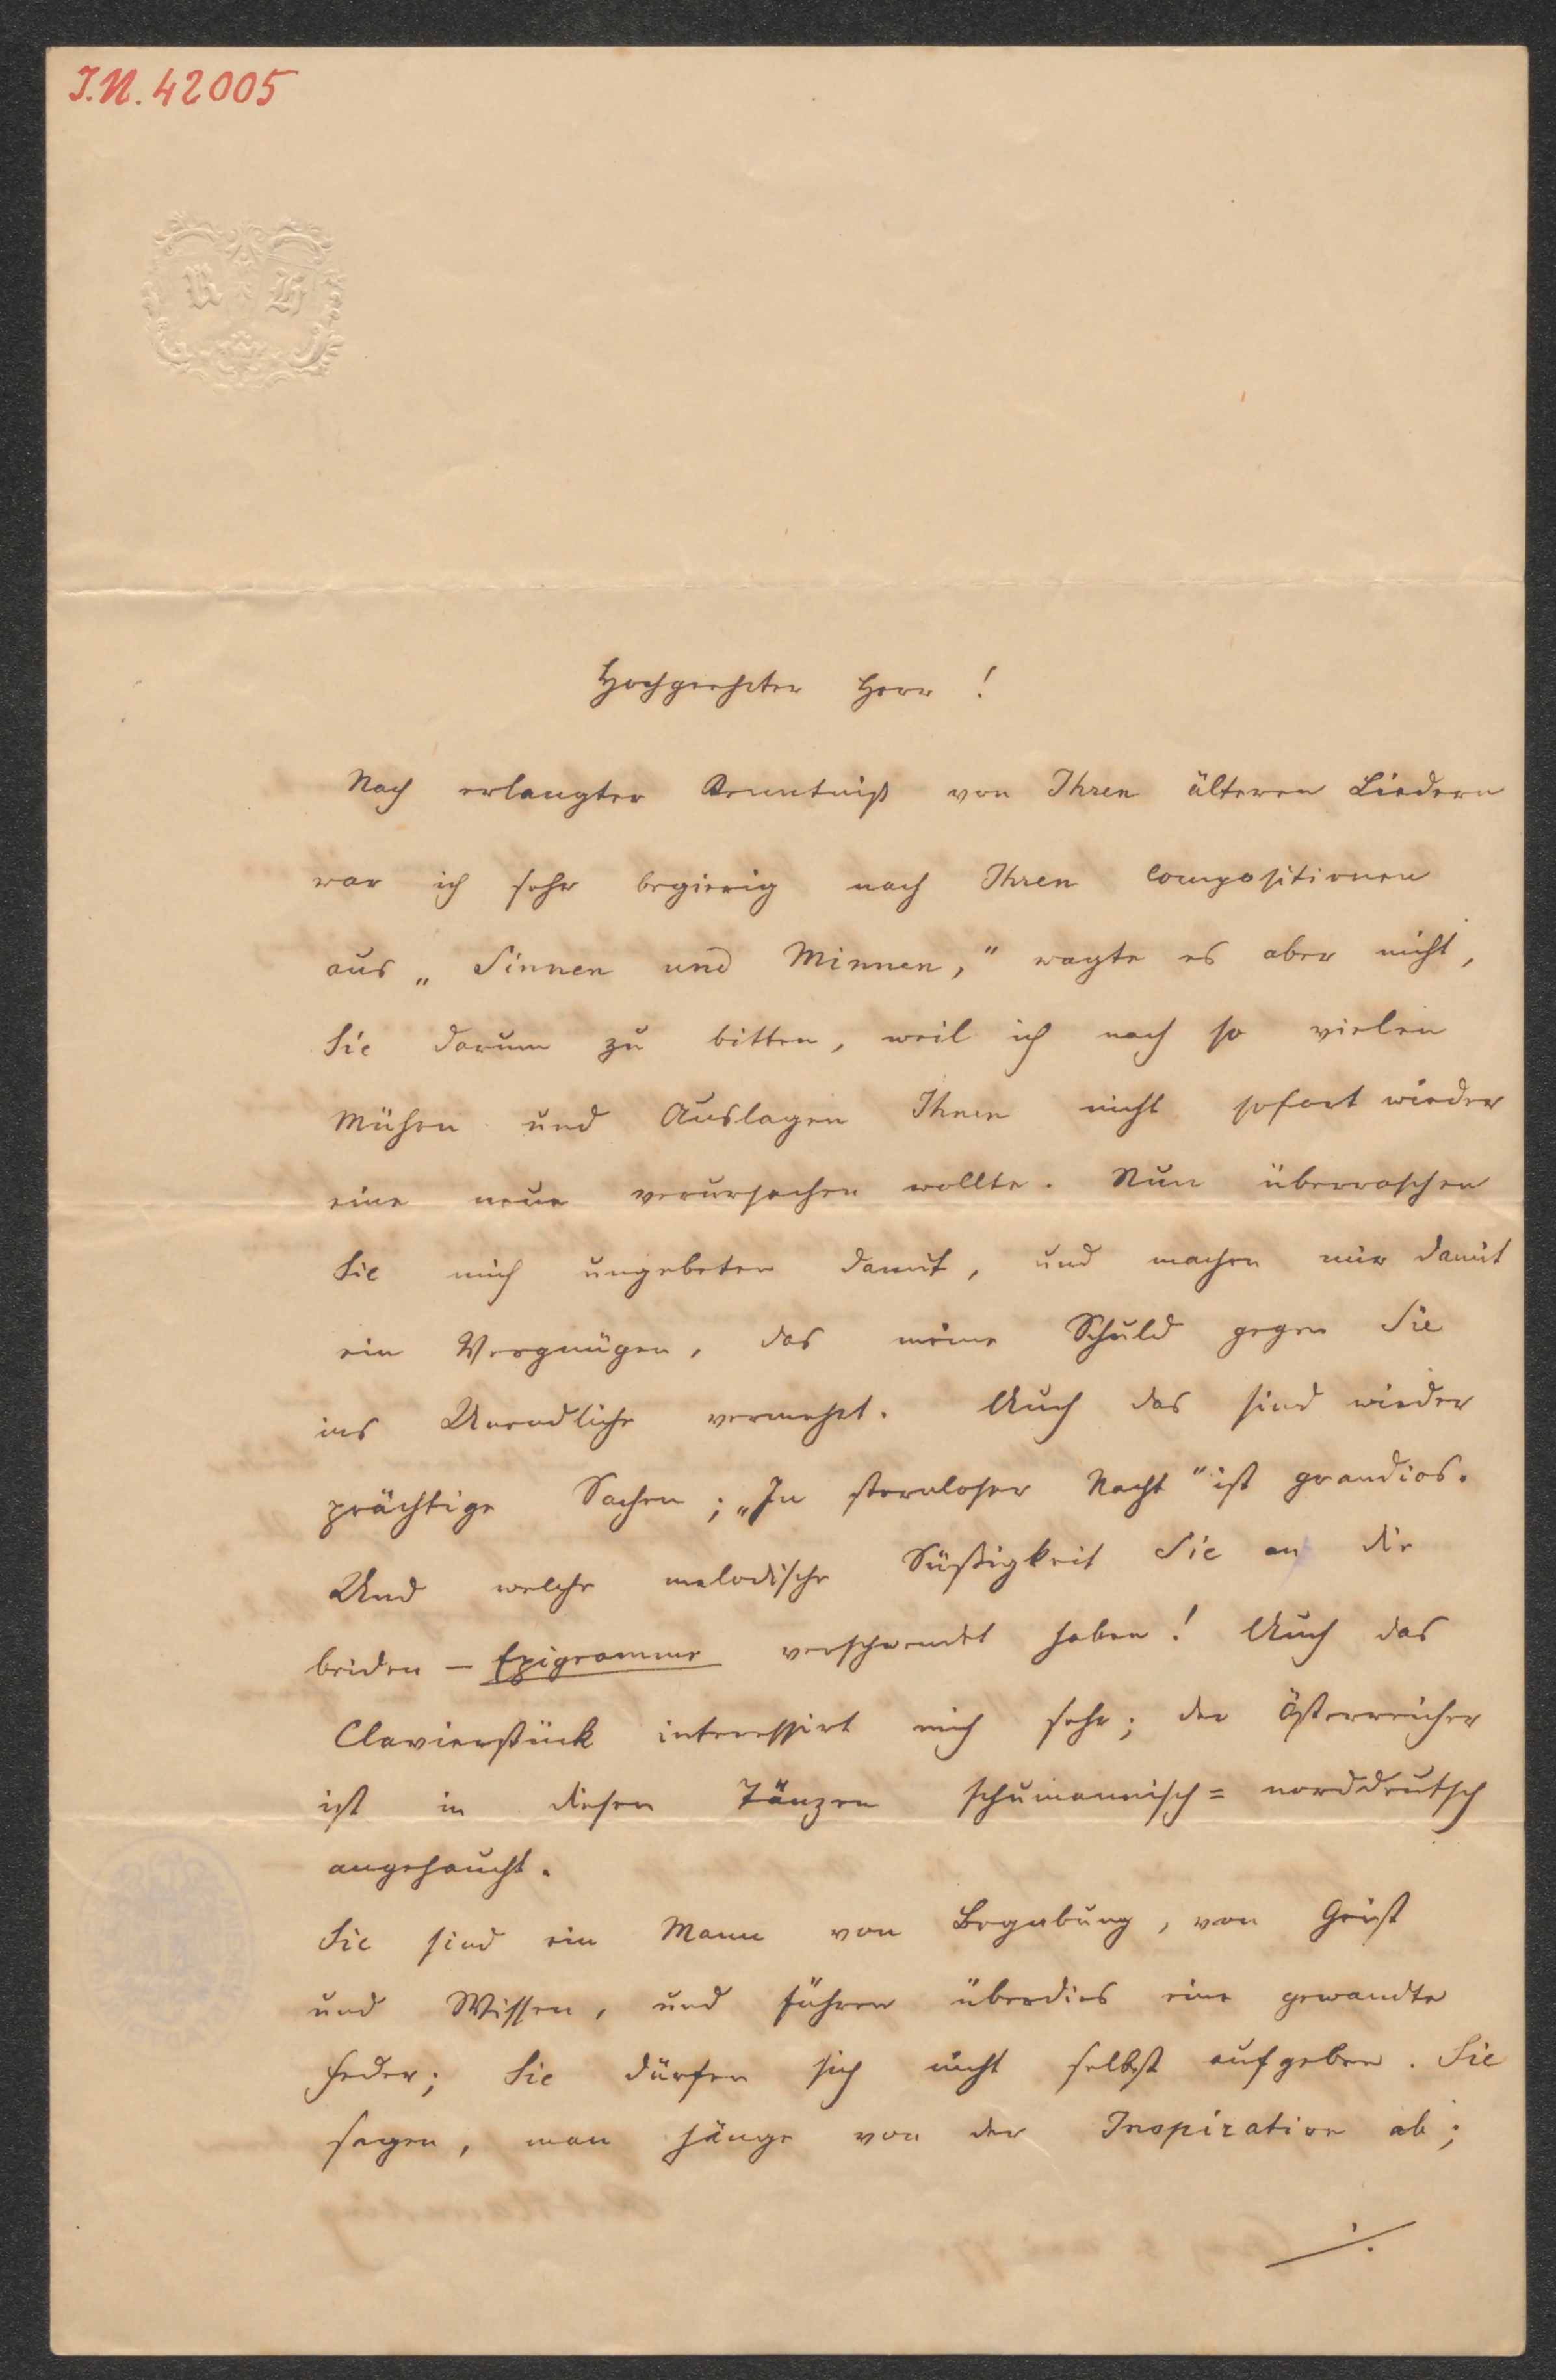 I.N. 42005
R H
Hochgeehrter Herr!
Nach erlangter Kenntniß von Ihren älteren Liedern
war ich sehr begierig nach Ihren Compositionen
aus „Sinnen und Minnen," wagte es aber nicht,
Sie darum zu bitten, weil ich nach so vielen
Mühen und Auslagen Ihnen nicht sofort wieder
eine neue verursachen wollte. Nun überraschen
Sie mich ungebeten damit, und machen mir damit
ein Vergnügen, das meine Schuld gegen Sie
ins Unendliche vermehrt. Auch das sind wieder
prächtige Sachen; „In sternloser Nacht" ist grandios.
Und welche melodische Süßigkeit Sie an die
beiden – Epigramme verschwendet haben! Auch das
Clavierstück interessirt mich sehr; der Österreicher
ist in diesen Tänzen schumannisch=norddeutsch
angehaucht.
Sie sind ein Mann von Begabung, von Geist
und Wissen, und führen überdies eine gewandte
Feder; Sie dürfen sich nicht selbst aufgeben. Sie
sagen, man hänge von der Inspiration ab;
./.